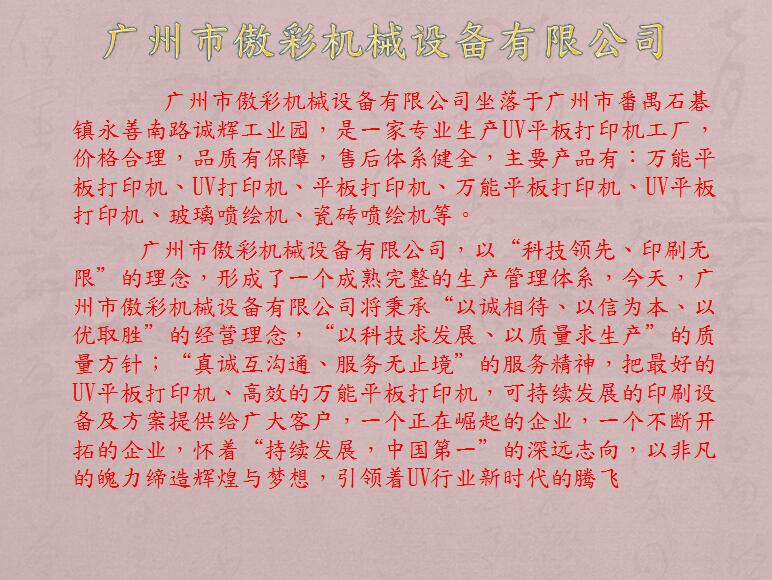 广州市傲彩机械设备有限公司
广州市傲彩机械设备有限公司坐落于广州市番禺石碁
镇永善南路诚辉工业园，是一家专业生产UV平板打印机工厂，
价格合理，品质有保障，售后体系健全，主要产品有：万能平
板打印机、UV打印机、平板打印机、万能平板打印机、UV平板
打印机、玻璃喷绘机、瓷砖喷绘机等。
广州市傲彩机械设备有限公司，以“科技领先、印刷无
限”的理念，形成了一个成熟完整的生产管理体系，今天，广
州市傲彩机械设备有限公司将秉承“以诚相待、以信为本、以
优取胜”的经营理念，“以科技求发展、以质量求生产”的质
量方针；“真诚互沟通、服务无止境”的服务精神，把最好的
UV平板打印机、高效的万能平板打印机，可持续发展的印刷设
备及方案提供给广大客户，一个正在崛起的企业，一个不断开
拓的企业，怀着“持续发展，中国第一”的深远志向，以非凡
的魄力缔造辉煌与梦想，引领着UV行业新时代的腾飞